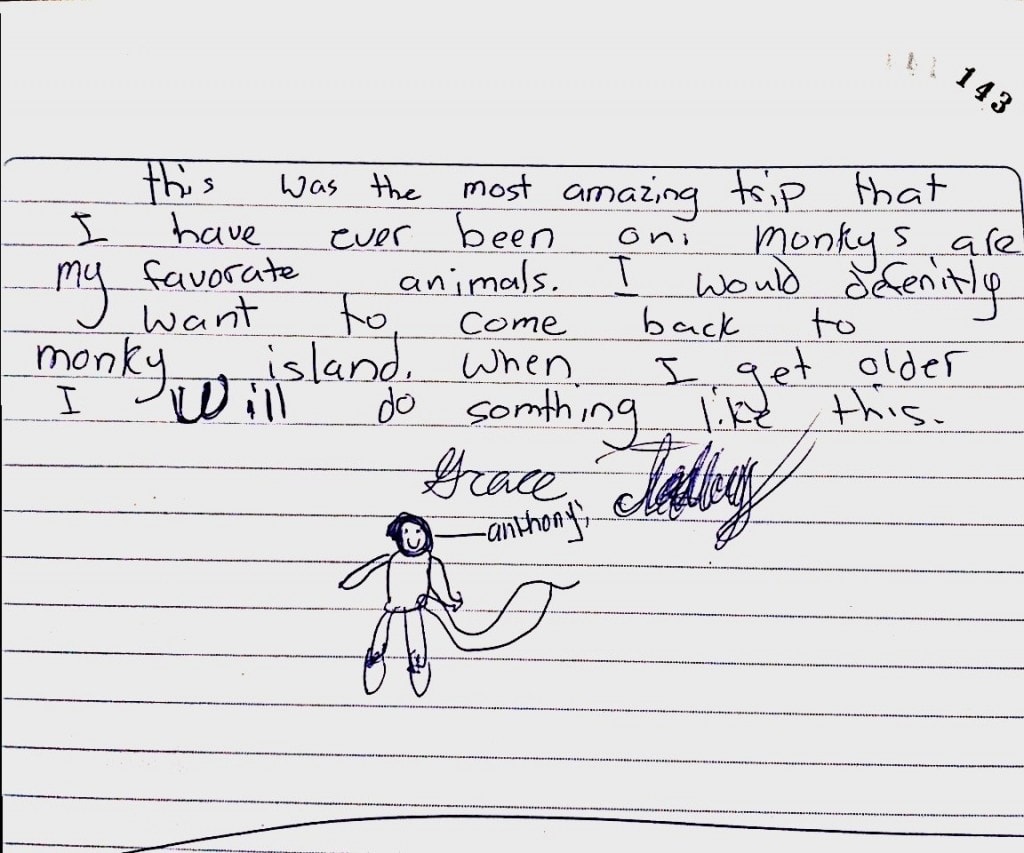 143
this was the most amazing trip that
I have ever been on. monkys are
my favorate animals. I would defenitly
want to come back to
monky island. when I get older
I will do somthing like this.
Grace
anthony